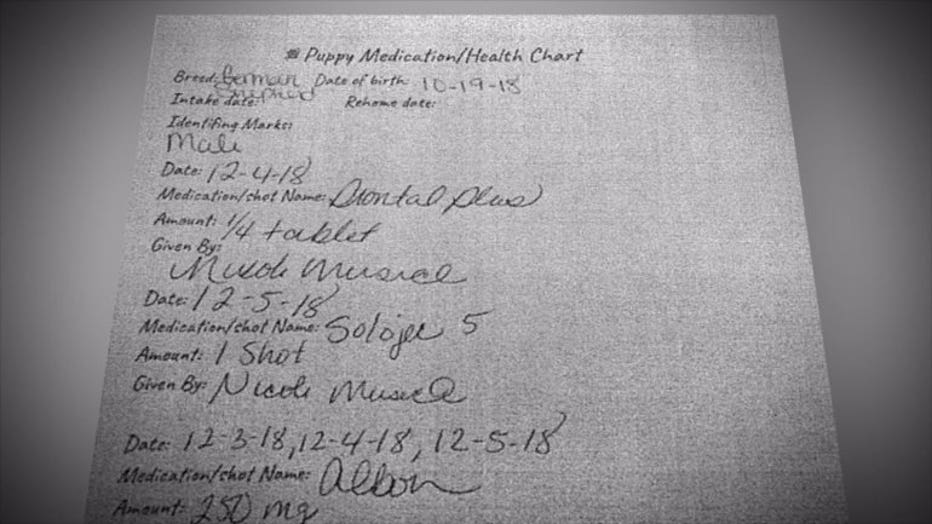 Puppy Medication/Health Chart
Breed: German Shepherd Date of birth: 10-19-18
Intake date: Rehome date:
Identifing Marks:
Male
Date: 12-4-18
Medication/shot Name: Drontal plus
Amount: 1/4 tablet
Given By:
Nicole Musice
Date: 12-5-18
Medication/shot Name: Solojec 5
Amount: 1 Shot
Given By: Nicole Musice
Date: 12-3-18, 12-4-18, 12-5-18
Medication/shot Name: Albon
Amount: 250 mg